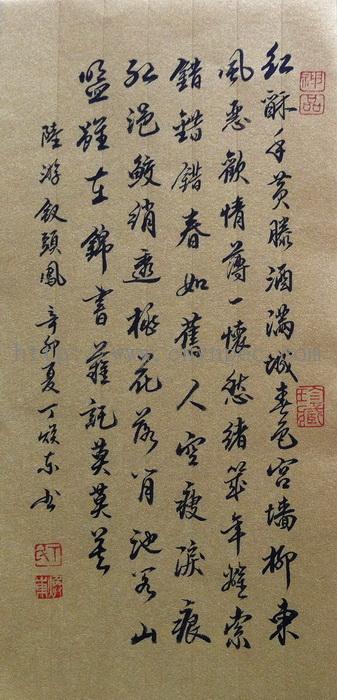 紅酥手黃滕酒滿城春色宮墻柳東
風惡歡情薄一懷愁緒幾年離索
錯錯錯春如舊人空瘦淚痕
紅浥鮫綃透桃花落閑池閣山
盟雖在錦書難託莫莫莫
陸游釵頭鳳 辛卯夏 丁 东书
神品
珍藏